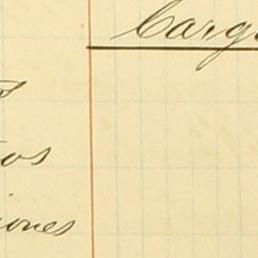 Carg
os
iones